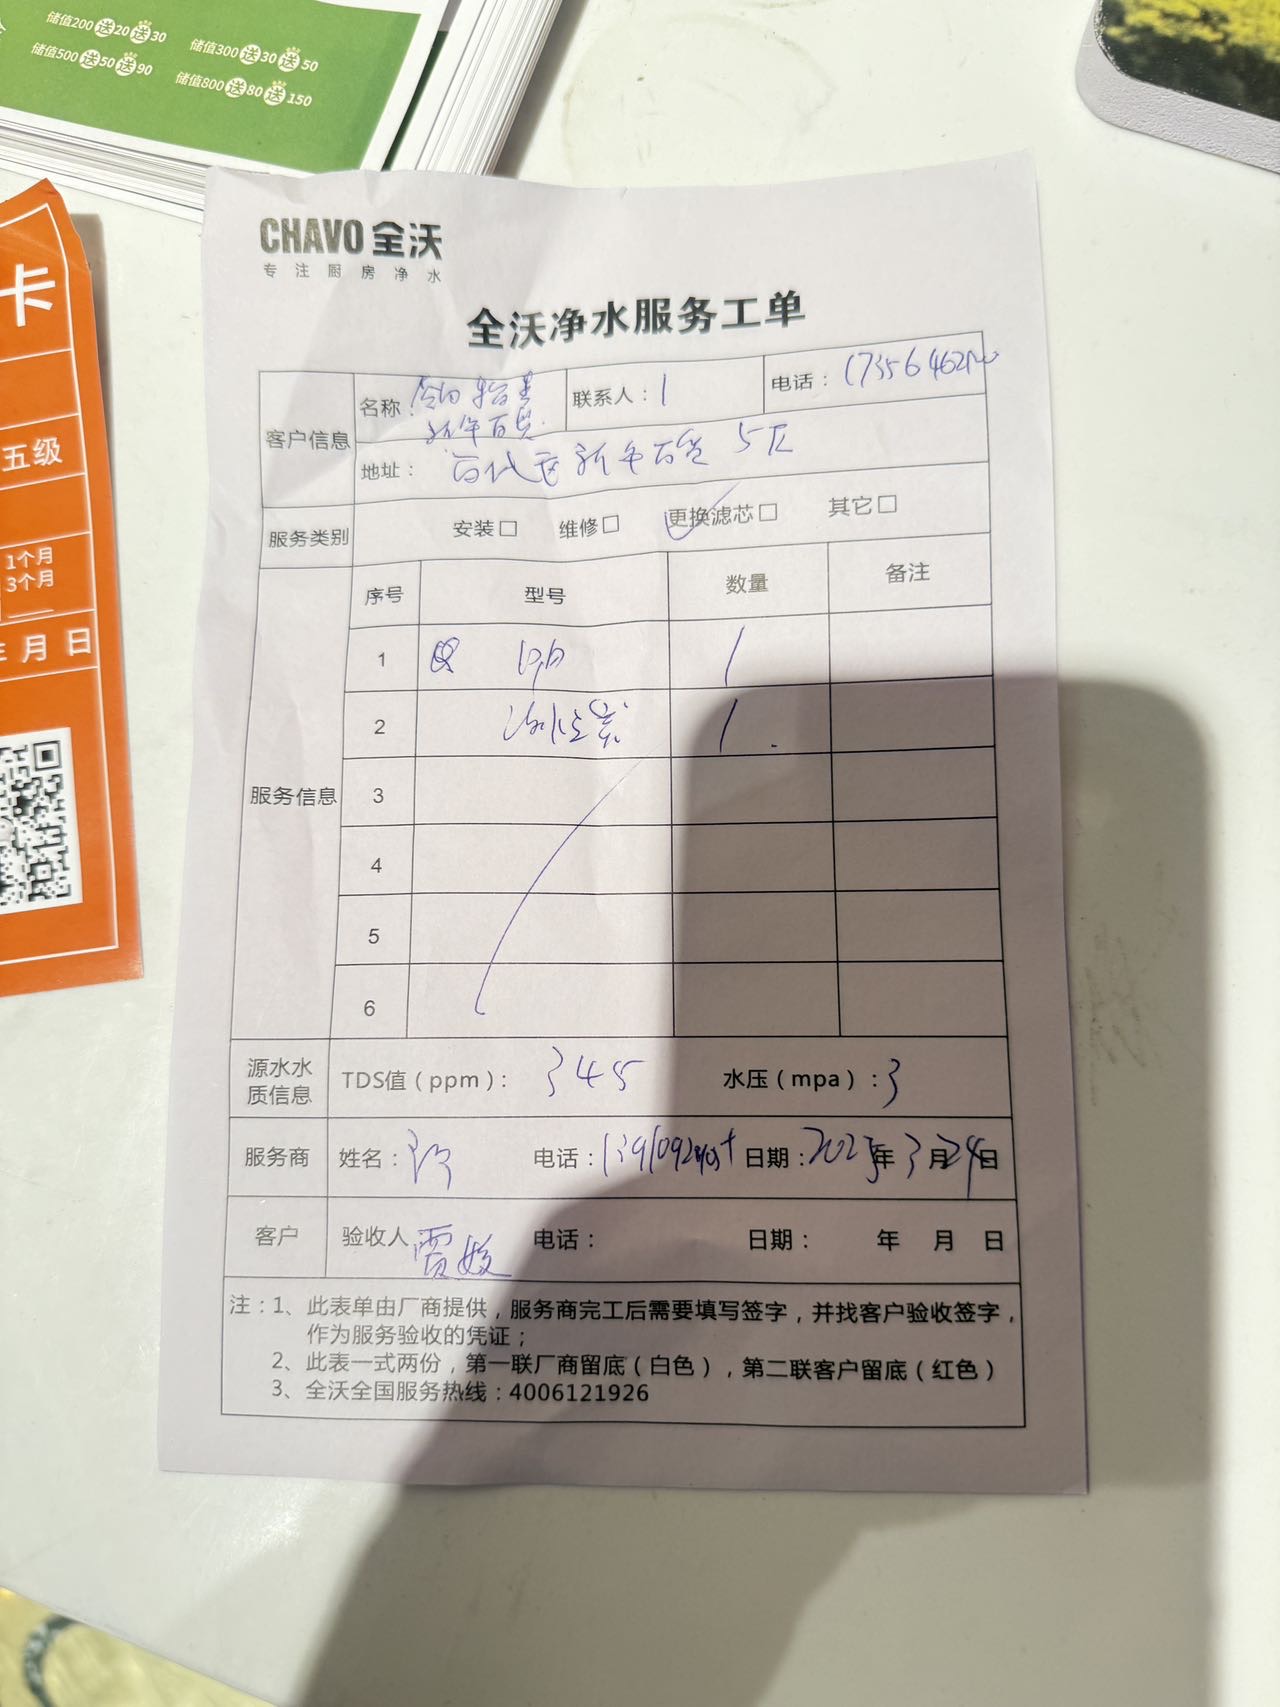 储值200送20送30
储值300送30送50
储值500送50送90
储值800送80送150
卡
五级
1个月
3个月
年 月 日
CHAVO 全沃
专注厨房净水
全沃净水服务工单
客户信息
名称：
新年百货
联系人：
电话：
地址： 新年百货 5F
服务类别 安装□ 维修□ 更换滤芯□ 其它□
服务信息
序号 型号 数量 备注
1 1
2 1
3
4
5
6
源水水质信息 TDS值（ppm）： 345 水压（mpa）：3
服务商 姓名： 电话： 日期：2025年3月24日
客户 验收人 贾 电话： 日期： 年 月 日
注：1、此表单由厂商提供，服务商完工后需要填写签字，并找客户验收签字，
作为服务验收的凭证；
2、此表一式两份，第一联厂商留底（白色），第二联客户留底（红色）
3、全沃全国服务热线：4006121926